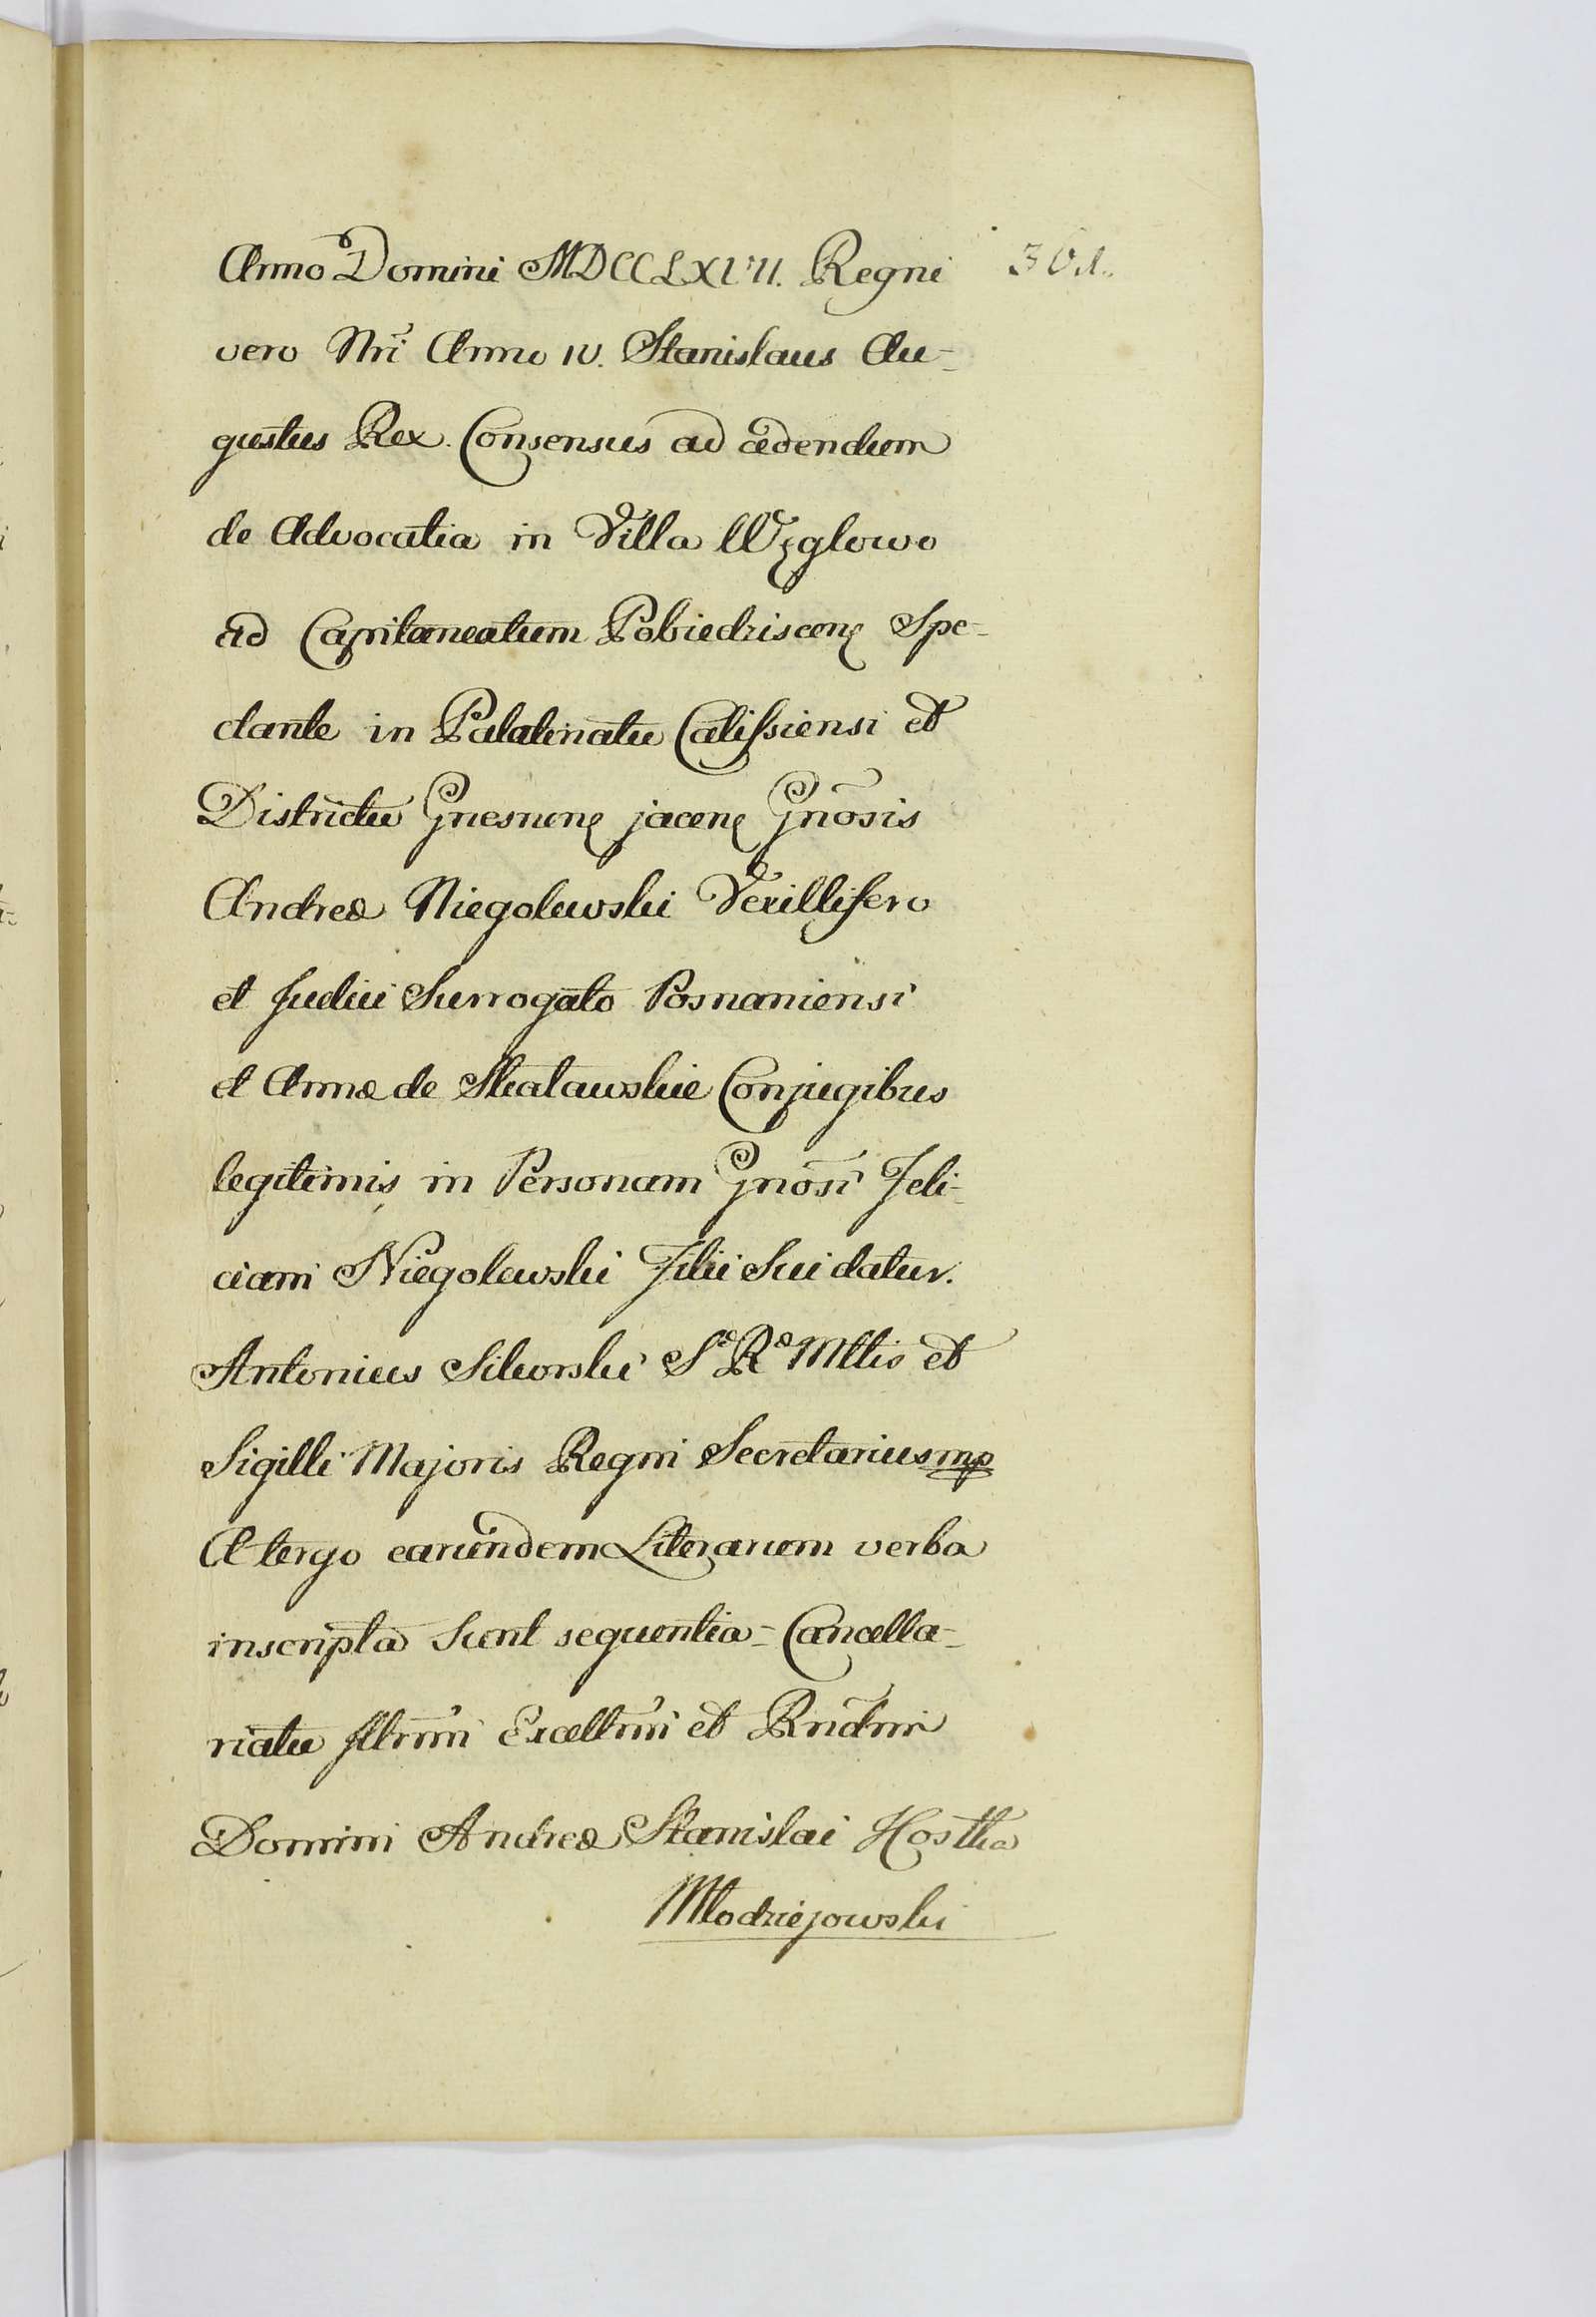 Anno Domini MDCCLXVII. Regni 361.
vero Nri Anno IV. Stanislaus Au-
gustus Rex. Consensus ad cedendum
de Advocatia in Villa Węglewo
ad Capitaneatum Pobiedziscen Spe-
ctante in Palatinatu Calissiensi et
Districtu Gnesnen jacen Gnosis
Andreæ Niegolewski Vexillifero
et Judici Surrogato Posnaniensi
et Annæ de Skaławskie Conjugibus
legitimis, in Personam Gnosi Feli-
ciani Niegolewski Filii Sui datur.
Antonius Sikorski Sæ Ræ Mttis et
Sigilli Majoris Regni Secretarius mp
A tergo earundem Literarum verba
inscripta Sunt sequentia - Cancella-
riatu Illmi Excellmi et Rndmi
Domini Andreæ Stanislai Kostka
Młodziejowski